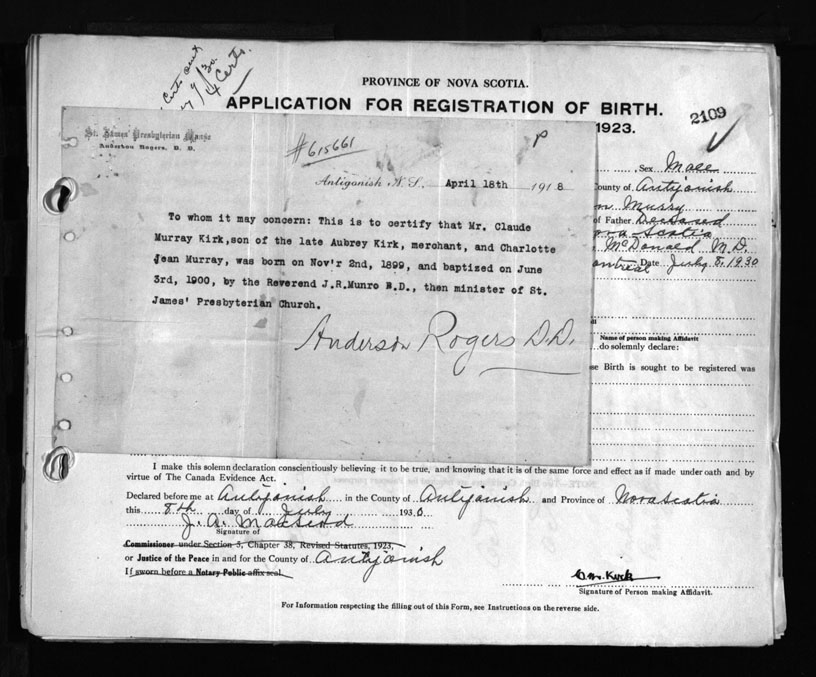 Certs sent
4 Certs.
PROVINCE OF NOVA SCOTIA.
APPLICATION FOR REGISTRATION OF BIRTH.
2109
1923.
St. James' Presbyterian Manse
Anderson Rogers, D. D.
#615661
P
Antigonish N. S. April 18th 1918
To whom it may concern: This is to certify that Mr. Claude
Murray Kirk, son of the late Aubrey Kirk, merchant, and Charlotte
Jean Murray, was born on Nov'r 2nd, 1899, and baptized on June
3rd, 1900, by the Reverend J.R.Munro B.D., then minister of St.
James' Presbyterian Church.
Anderson Rogers D.D.
Sex Male
County of Antigonish
of Father Deceased
Scotia
McDonald M.D.
Date July 8, 1930
Name of person making Affidavit
do solemnly declare:
se Birth is sought to be registered was
I make this solemn declaration conscientiously believing it to be true, and knowing that it is of the same force and effect as if made under oath and by
virtue of The Canada Evidence Act.
Declared before me at Antigonish in the County of Antigonish and Province of Nova Scotia
this 8th day of July 1930
J. A. MacLeod
Signature of
Commissioner under Section 5, Chapter 38, Revised Statutes, 1923,
or Justice of the Peace in and for the County of Antigonish
If sworn before a Notary Public affix seal.
C. M. Kirk
Signature of Person making Affidavit.
For Information respecting the filling out of this Form, see Instructions on the reverse side.